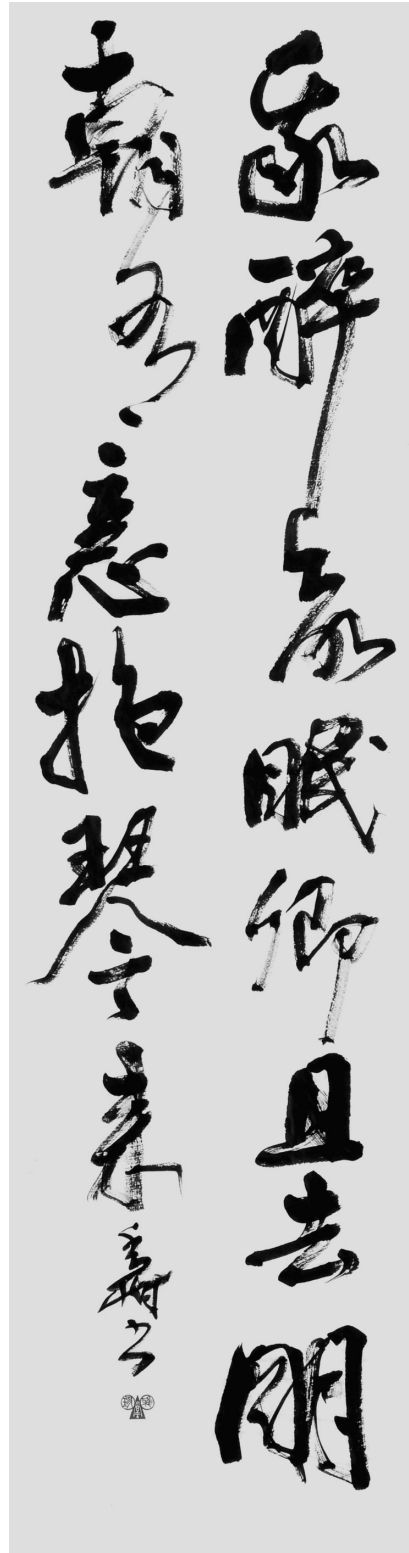 我醉欲眠卿且去明
朝有意抱琴來